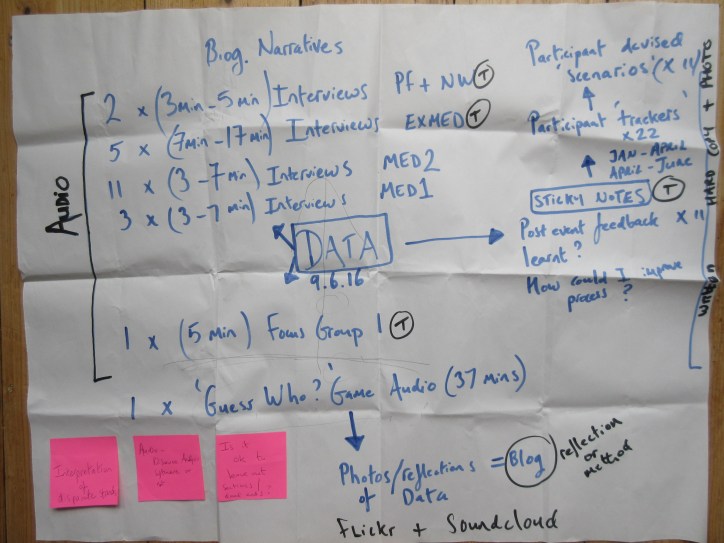 Biog. Narratives
2 x (3min-5min) Interviews Pf + NW T
5 x (7min-17min) Interviews EXMED T
11 x (3-7min) Interviews MED2
3 x (3-7min) Interviews MED1
AUDIO
DATA
9.6.16
1 x (5min) Focus Group 1 T
1 x 'Guess Who?' Game Audio (37 mins)
Photos/reflections = Blog reflection
of Data or
method
Flickr + Soundcloud
Participant devised
'scenarios' (x 11)
Participant 'trackers'
x22
JAN - APRIL
APRIL - JUNE
STICKY NOTES T
Post event feedback x 11
learnt?
How could I improve
process?
WRITTEN HARD COPY + PHOTO
Interpretation
of
Audio -
Is it
ok to